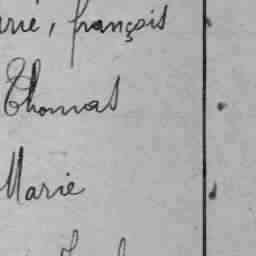 françois
Thomas
Marie